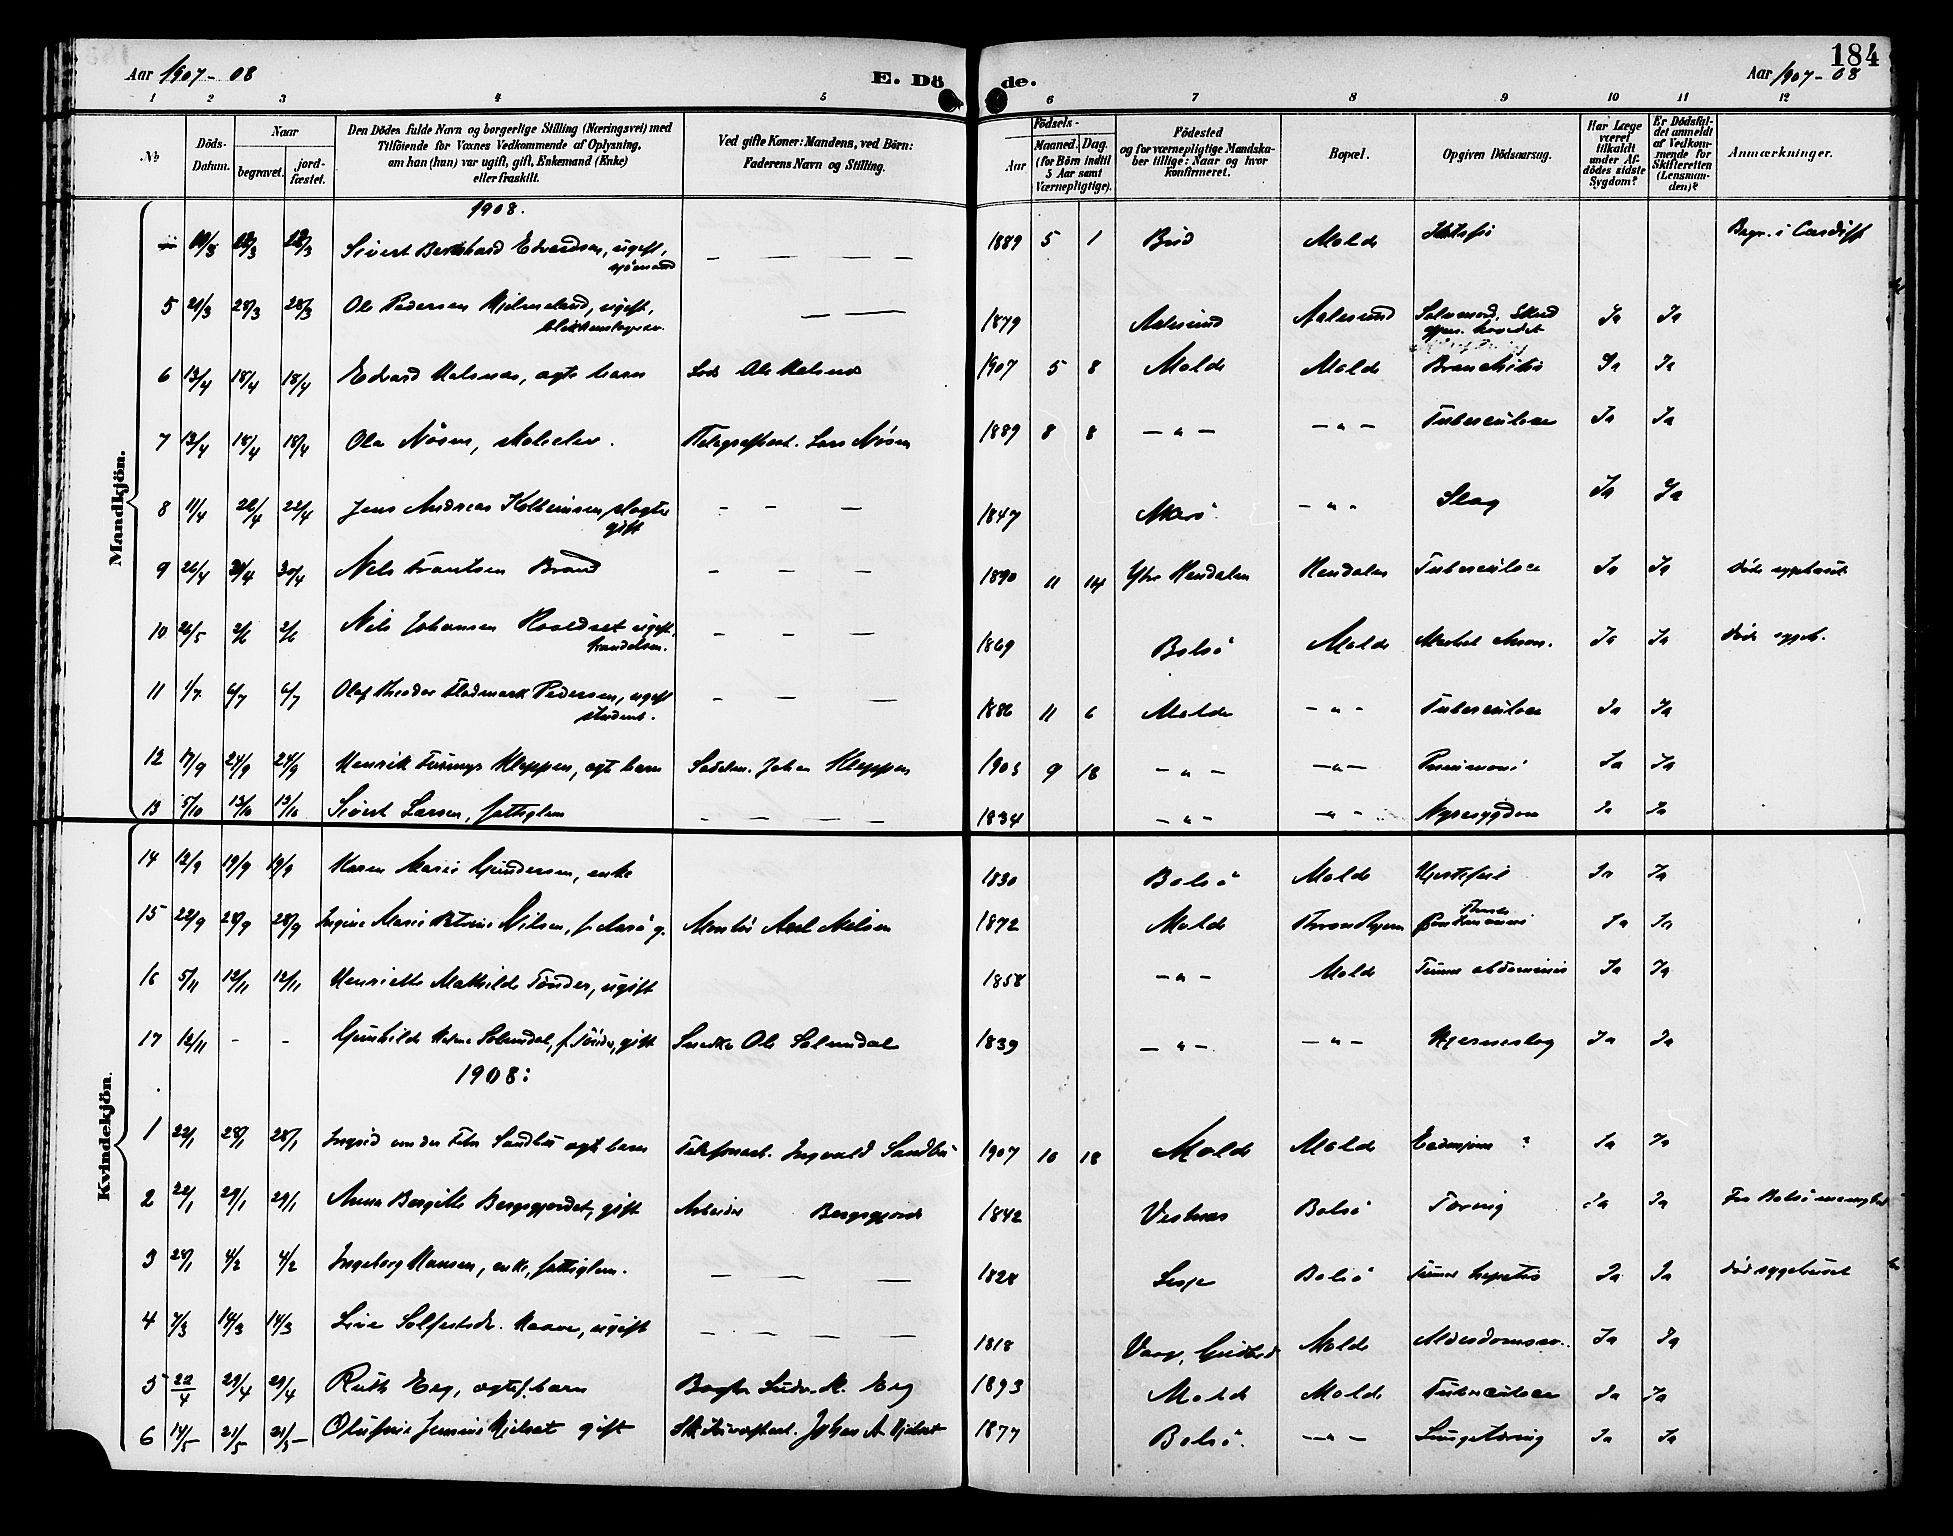 184
Aar 1907-08
E. Döde.
Aar 1907-08
1 2 3 4 5 6 7 8 9 10 11 12
No
Döds-Datum.
Naar
begravet.
jordfæstet.
Den Dödes fulde Navn og borgerlige Stilling (Næringsvei) med
Tilföiende for Voxnes Vedkommende af Oplysning,
om han (hun) var ugift, gift, Enkemand (Enke)
eller fraskilt.
Ved gifte Koner: Mandens, ved Börn:
Faderens Navn og Stilling.
Födsels-
Aar
Maaned. Dag.
(for Börn indtil
5 Aar samt
Værnepligtige).
Födested
og for værnepligtige Mandska-
ber tillige: Naar og hvor
konfirmeret.
Bopæl.
Opgiven Dödsaarsag.
Har Læge
været
tilkaldt
under Af-
dödes sidste
Sygdom?
Er Dödsfal-
det anmeldt
af Vedkom-
mende for
Skifteretten
(Lensman-
den)?
Anmærkninger.
Mandkjön.
1908.
Sivert Bernhard Edvardsen, ugift, sjömand — — — — 1889 5 1 Bud Molde Begr. i Cardiff
5 21/3 28/3 28/3 Ole Pedersen Hjelmeland, ugift, — — 1879 Aalesund Aalesund Ja Ja
6 13/4 18/4 18/4 Edvard Malsnes, ægte barn Lods Ole Malsnes 1907 5 8 Molde Molde Bronchitis Ja Ja
7 13/4 18/4 18/4 Ola Nösen, skoleelev. Telegrafbest. Lars Nösen 1889 8 8 — " — — " — Tuberculose Ja Ja
8 11/4 22/4 22/4 Jens Andreas Kolbeinsen, slagter gift — — — 1847 — " — Slag Ja Ja
9 26/4 30/4 30/4 Nils Frantsen Brand — — — 1890 11 14 Ytre Rendalen Rendalen Tuberculose Ja Ja Döde sygehuset
10 26/5 2/6 2/6 Nils Johansen Roaldset ugift, handelsm. — — — 1869 Bolsö Molde Ja Ja Döde sygeh.
11 1/7 6/7 6/7 Olaf Theodor Flademark Pedersen, ugift student. — — — 1886 11 6 Molde — " — Tuberculose Ja Ja
12 17/9 24/9 24/9 Henrik Kleppen, ægte barn Sadelm. Johan Kleppen 1905 9 18 — " — — " — Pneumoni Ja Ja
13 5/10 13/10 13/10 Sivert Larsen, fattiglem — — — — 1834 — " — — " — Nyresygdom Ja Ja
Kvindekjön.
14 12/9 19/9 19/9 Karen Marie Gundersen, enke 1830 Bolsö Molde Hjertefeil Ja Ja
15 22/9 28/9 28/9 Ingine Marie Petrine Nilsen, g. Montör Axel Nilsen 1872 Molde Throndhjem Ja Ja
16 5/11 12/11 12/11 Henriette Mathilde Tönder, ugift 1858 — " — Molde Tumor abdominis Ja Ja
17 12/11 - - Gunhilde Solemdal, f. Tönder, gift Snedker Ole Solemdal 1839 — " — — " — Hjerneslag Ja Ja
1908:
1 22/1 28/1 28/1 Ingrid Sandbu ægte barn Telefonbest. Ingvald Sandbu 1907 10 18 Molde Molde ? Ja Ja
2 22/1 29/1 29/1 Anna Bergitte Bergsgjerdet, gift Arbeider Bergsgjerde 1842 Vestnes Bolsö Tæring Ja Ja Fra Bolsö menighed
3 28/1 4/2 4/2 Ingeborg Hansen, enke, fattiglem. — — — 1828 Lesje Bolsö Tumor hepatis Ja Ja Död sygehuset
4 7/3 14/3 14/3 Line ugift — — — — 1818 Molde Ja Ja
5 22/4 29/4 29/4 Ruth Eeg, ægtef. barn Bagter Ludv. M. Eeg 1893 Molde Molde Tuberculose Ja Ja
6 14/5 21/5 21/5 Olufine Jensine Hjelset gift Johan A. Hjelset 1877 Bolsö. — " — Lungetæring Ja Ja